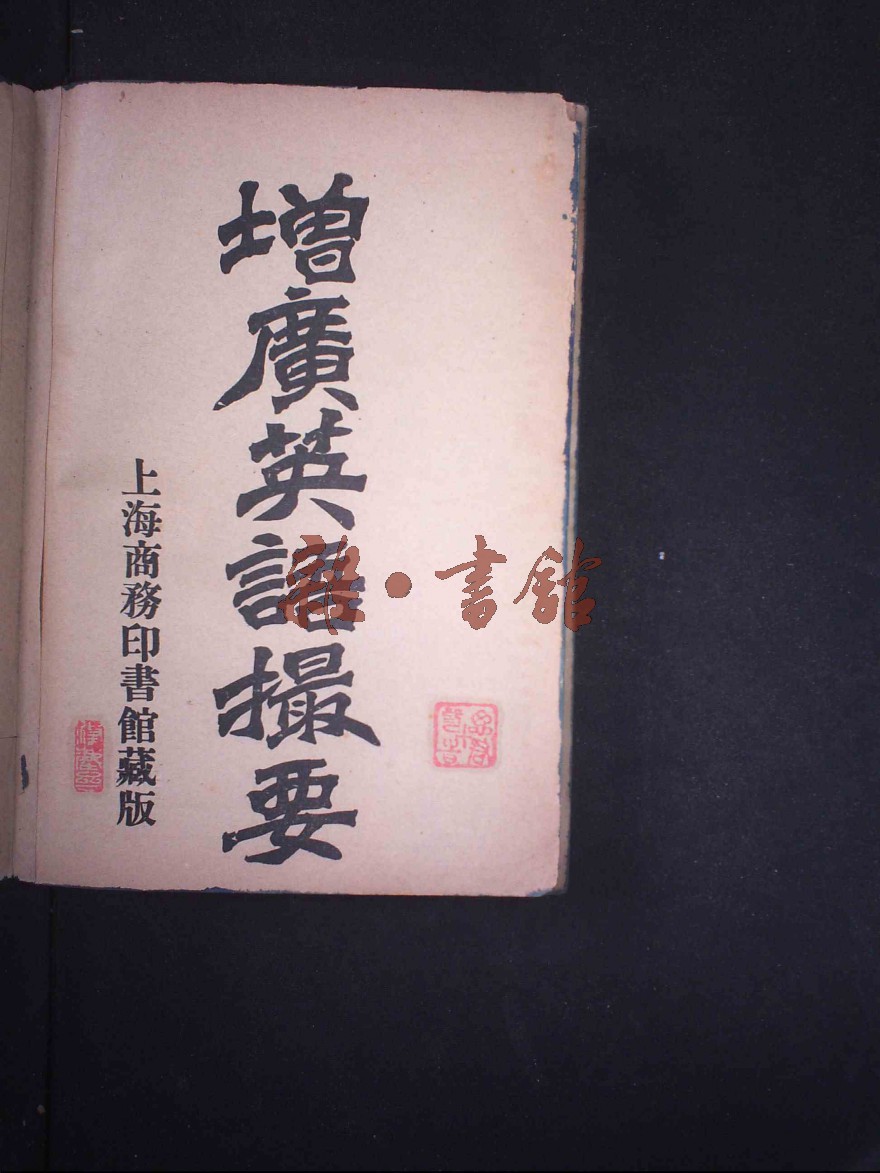 增廣英語撮要
上海商務印書館藏版
雅·書館